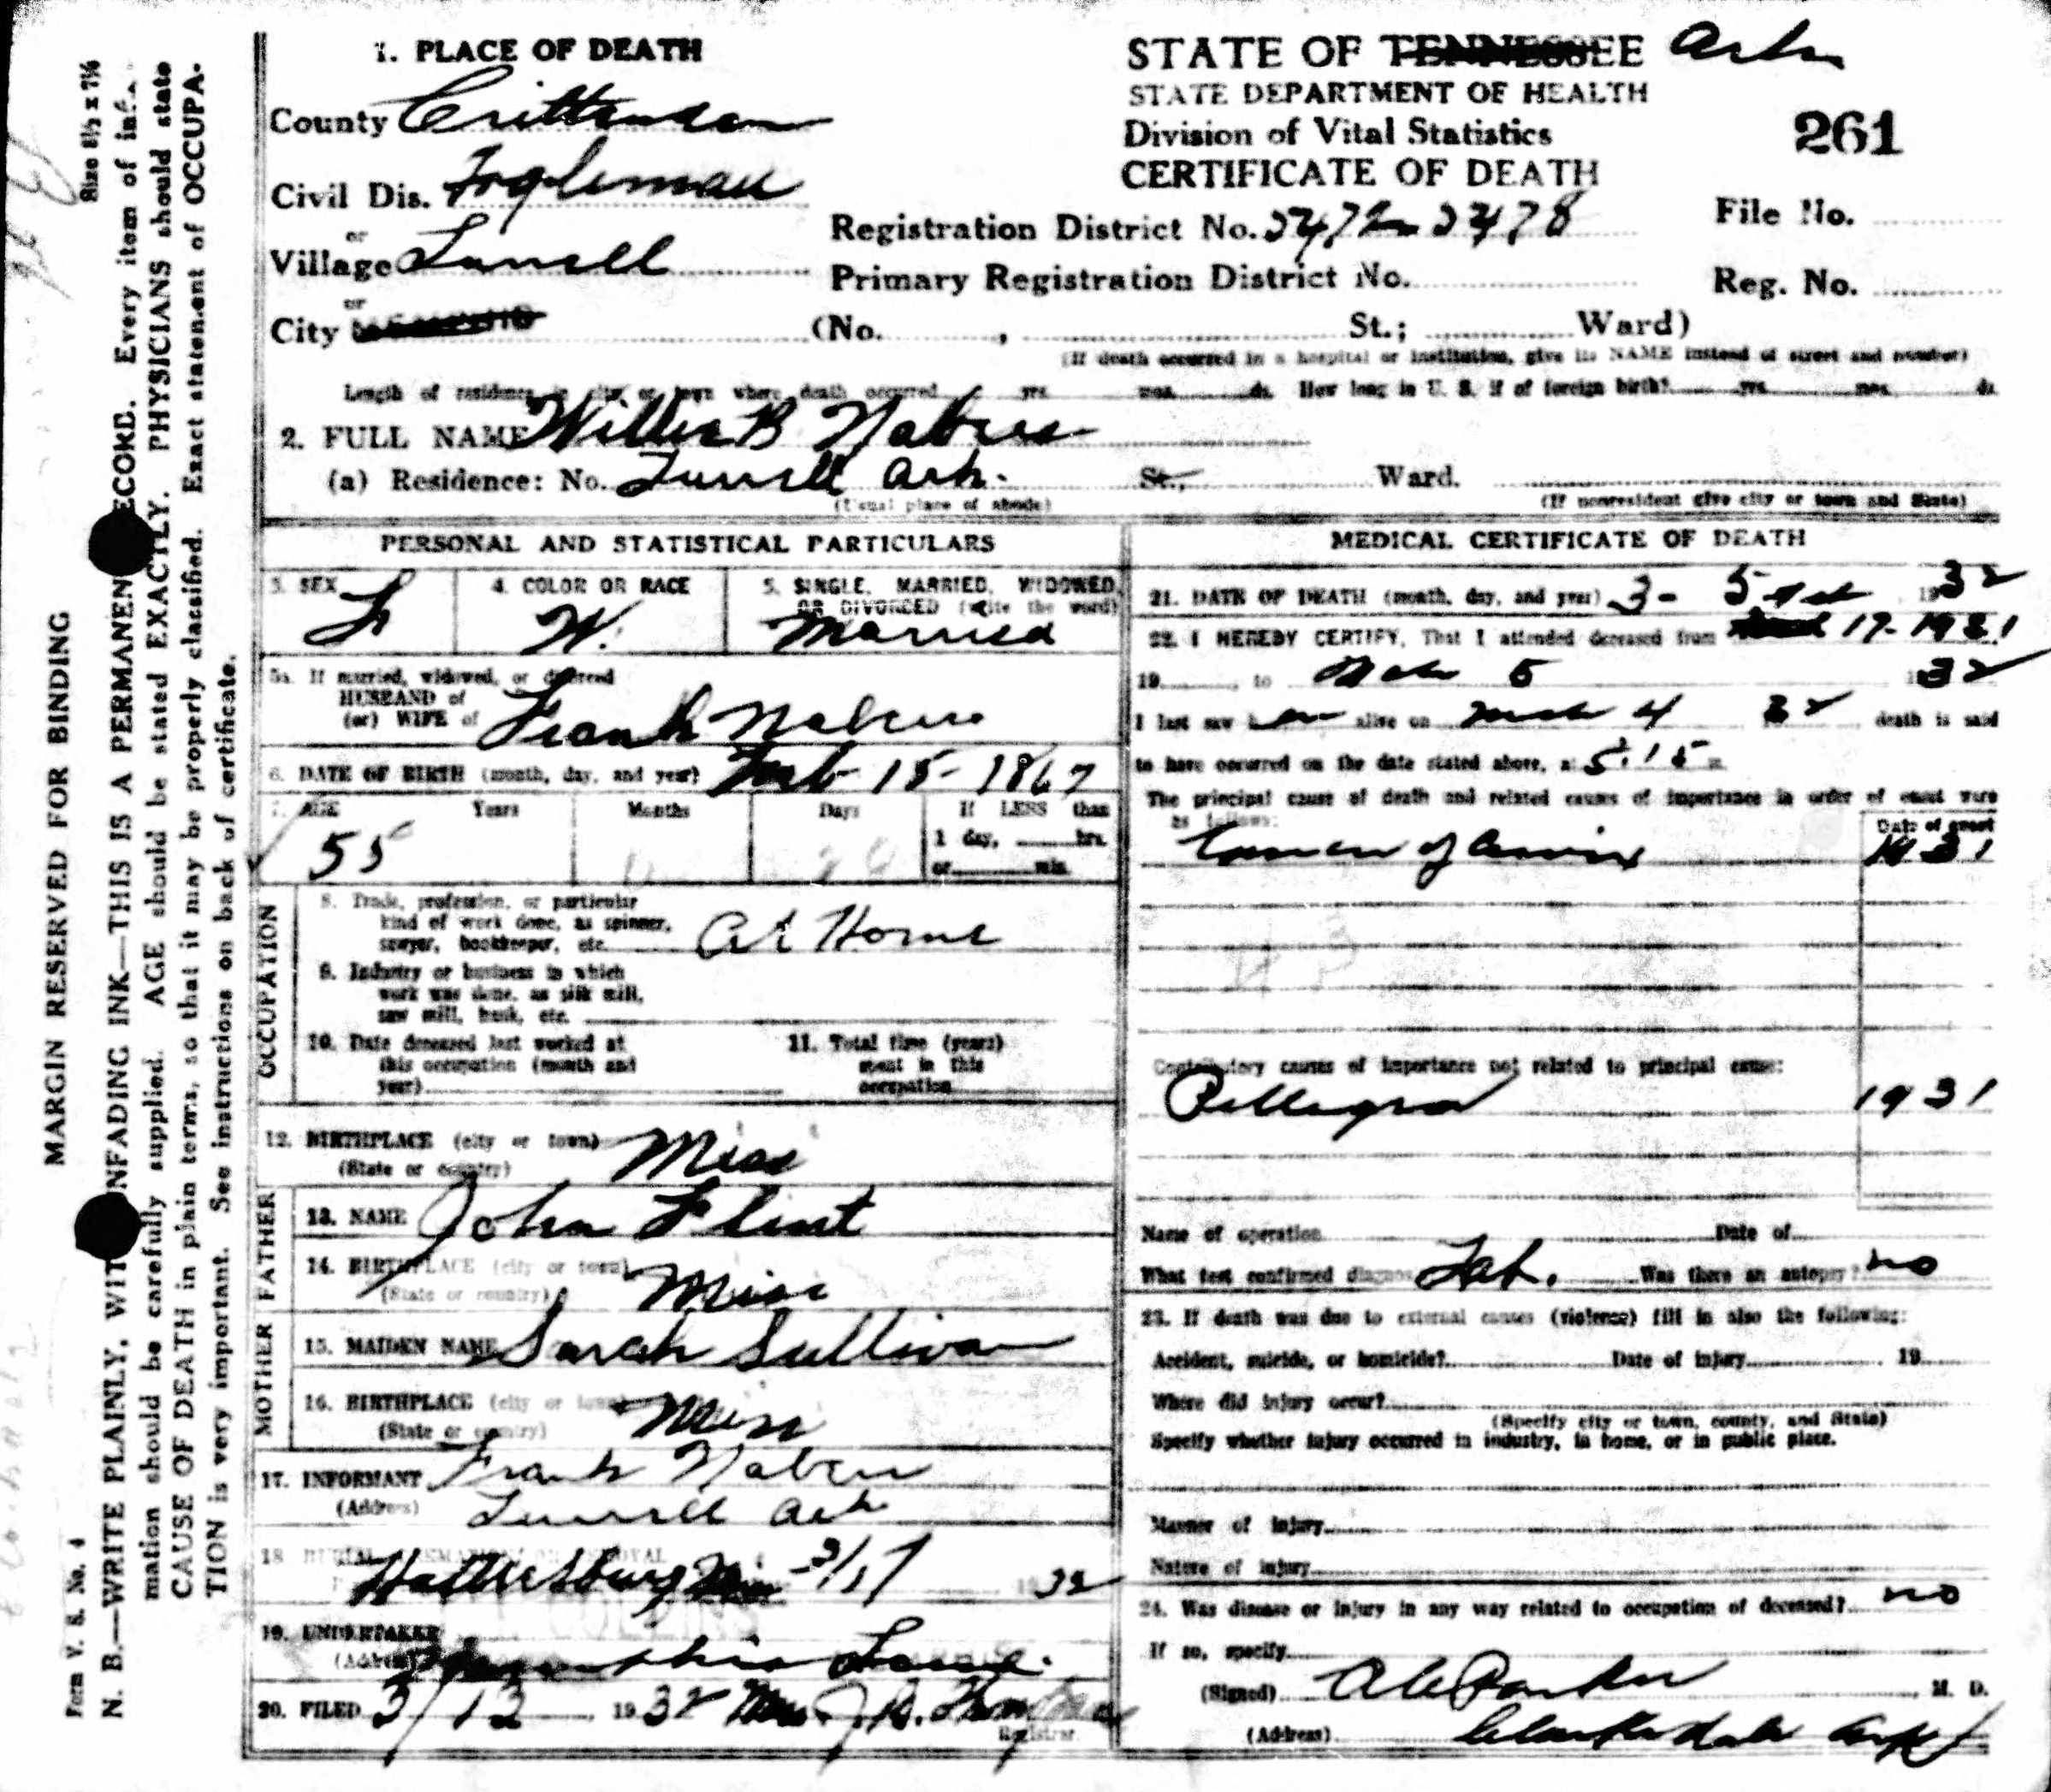 1. PLACE OF DEATH
County Crittenden
Civil Dis. Fogleman
or
Village Turrell
or
City
STATE OF TENNESSEE Ark
STATE DEPARTMENT OF HEALTH
Division of Vital Statistics
CERTIFICATE OF DEATH
261
Registration District No. 2478
File No.
Primary Registration District No.
Reg. No.
(No. , St.; Ward)
(If death occurred in a hospital or institution, give its NAME instead of street and number)
Length of residence in city or town where death occurred yrs. mos. ds. How long in U. S. if of foreign birth? yrs. mos. ds.
2. FULL NAME Willie B Nabers
(a) Residence: No. Turrell Ark. St., Ward.
(Usual place of abode)
(If nonresident give city or town and State)
PERSONAL AND STATISTICAL PARTICULARS
3. SEX
F
4. COLOR OR RACE
W.
5. SINGLE, MARRIED, WIDOWED, OR DIVORCED (write the word)
Married
5a. If married, widowed, or divorced
HUSBAND of
(or) WIFE of Frank Nabers
6. DATE OF BIRTH (month, day, and year) 15 - 1867
7. AGE Years Months Days If LESS than
1 day, hrs.
or min.
55
OCCUPATION
8. Trade, profession, or particular
kind of work done, as spinner,
sawyer, bookkeeper, etc. At Home
9. Industry or business in which
work was done, as silk mill,
saw mill, bank, etc.
10. Date deceased last worked at
this occupation (month and
year)
11. Total time (years)
spent in this
occupation
12. BIRTHPLACE (city or town) Miss
(State or country)
FATHER
13. NAME John Flint
14. BIRTHPLACE (city or town) Miss
(State or country)
MOTHER
15. MAIDEN NAME Sarah Sullivan
16. BIRTHPLACE (city or town) Miss
(State or country)
17. INFORMANT Frank Nabers
(Address) Turrell Ark
18 BURIAL, CREMATION OR REMOVAL
Hattiesburg Miss 32
19. UNDERTAKER
(Address)
20. FILED 3/13, 1932 Mrs. J. B.
Registrar
MEDICAL CERTIFICATE OF DEATH
21. DATE OF DEATH (month, day, and year) 3 - 5 1932
22. I HEREBY CERTIFY, That I attended deceased from 17 - 1931
19 , to Mch 5 1932
I last saw her alive on March 4 32 death is said
to have occurred on the date stated above, at 5:15 m.
The principal cause of death and related causes of importance in order of onset were
as follows:
Date of onset
Cancer of Cervix 1931
Contributory causes of importance not related to principal cause:
Pellagra 1931
Name of operation Date of
What test confirmed diagnosis Lab. Was there an autopsy? no
23. If death was due to external causes (violence) fill in also the following:
Accident, suicide, or homicide? Date of injury 19
Where did injury occur?
(Specify city or town, county, and State)
Specify whether injury occurred in industry, in home, or in public place.
Manner of injury
Nature of injury
24. Was disease or injury in any way related to occupation of deceased? no
If so, specify
(Signed) Parker, M. D.
(Address) Clarkedale Ark
MARGIN RESERVED FOR BINDING
Form V. S. No. 4
Size 8½ x 7¼
N. B.—WRITE PLAINLY, WITH UNFADING INK—THIS IS A PERMANENT RECORD. Every item of infor-
mation should be carefully supplied. AGE should be stated EXACTLY. PHYSICIANS should state
CAUSE OF DEATH in plain terms, so that it may be properly classified. Exact statement of OCCUPA-
TION is very important. See instructions on back of certificate.